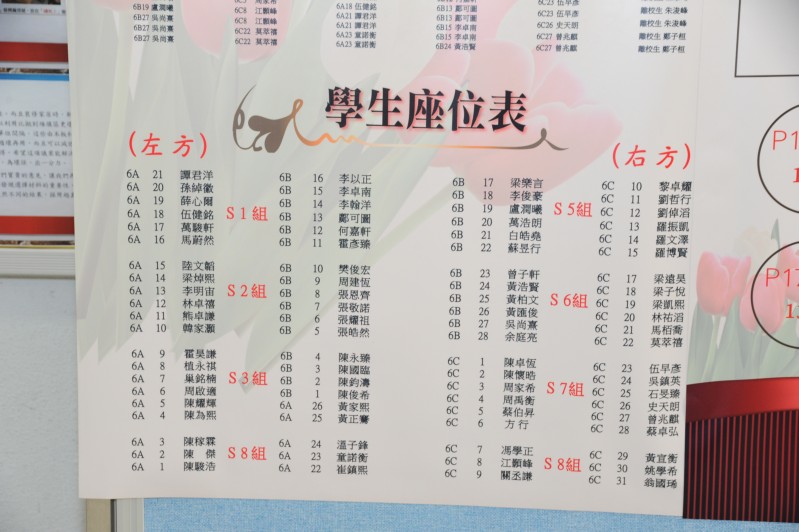 6B19 盧潤曦
6B27 吳尚熹
6B27 吳尚熹
6C5
6C8 江顥峰
6C8 江顥峰
6C22 莫萃禧
6C22 莫萃禧
6A18 伍健銘
6A21 譚君洋
6A21 譚君洋
6A23 童諾衡
6A23 童諾衡
6B13 鄭可圖
6B13 鄭可圖
6B15 李卓南
6B15 李卓南
6B24 黃浩賢
6C23 伍早彥
6C23 伍早彥
6C26 史天朗
6C27 曾兆麒
6C27 曾兆麒
離校生 朱浚峰
離校生 朱浚峰
離校生 鄭子桓
離校生 鄭子桓
學生座位表
(左方)
(右方)
6A 21 譚君洋
6A 20 孫綽徽
6A 19 薛心爾
6A 18 伍健銘
6A 17 萬駿軒
6A 16 馬蔚然
S1組
6B 16 李以正
6B 15 李卓南
6B 14 李翰洋
6B 13 鄭可圖
6B 12 何嘉軒
6B 11 霍彥臻
6B 17 梁樂言
6B 18 李俊豪
6B 19 盧潤曦
6B 20 萬浩朗
6B 21 白皓堯
6B 22 蘇昱行
S5組
6C 10 黎卓耀
6C 11 劉哲行
6C 12 劉倬滔
6C 13 羅振凱
6C 14 羅文澤
6C 15 羅博賢
6A 15 陸文韜
6A 14 梁焯熙
6A 13 李明宙
6A 12 林卓禧
6A 11 熊卓謙
6A 10 韓家灝
S2組
6B 10 樊俊宏
6B 9 周建恆
6B 8 張恩齊
6B 7 張敬諾
6B 6 張耀祖
6B 5 張皓然
6B 23 曾子軒
6B 24 黃浩賢
6B 25 黃柏文
6B 26 黃匯俊
6B 27 吳尚熹
6B 28 余庭亮
S6組
6C 17 梁逺昊
6C 18 梁子悅
6C 19 梁凱熙
6C 20 林祐滔
6C 21 馬栢喬
6C 22 莫萃禧
6A 9 霍昊謙
6A 8 植永祺
6A 7 巢銘楠
6A 6 周啟適
6A 5 陳耀輝
6A 4 陳為熙
S3組
6B 4 陳永臻
6B 3 陳國臨
6B 2 陳鈞濤
6B 1 陳俊希
6A 26 黃家熙
6A 25 黃正騫
6C 1 陳卓恆
6C 2 陳懷晧
6C 3 周家希
6C 4 周禹衡
6C 5 蔡伯昇
6C 6 方行
S7組
6C 23 伍早彥
6C 24 吳鎮英
6C 25 石旻臻
6C 26 史天朗
6C 27 曾兆麒
6C 28 蔡卓弘
6A 3 陳稼霖
6A 2 陳傑
6A 1 陳駿浩
S8組
6A 24 溫子鋒
6A 23 童諾衡
6A 22 崔鎮熙
6C 7 馮學正
6C 8 江顥峰
6C 9 關丞謙
S8組
6C 29 黃宣衡
6C 30 姚學希
6C 31 翁國琋
P1
P17